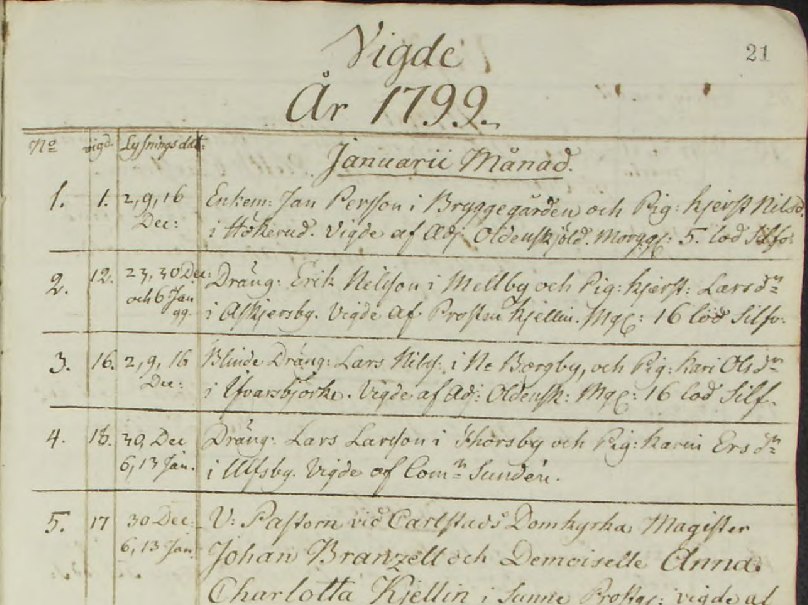 21
Vigde
År 1799.
No vigd. Lysnings dat:
Januarii Månad.
1. 1. 2, 9, 16 Enkem: Jan Persson i Bryggegården och Pig: Kjerst Nilsd.
Dec: i Hökerud. Vigde af Adj. Oldenskjöld. Morgg: 5. lod Silfv.
2. 12. 23, 30 Dec: Dräng: Erik Nelsson i Mellby och Pig: Kjerst: Larsdr
och 6 Jan i Askjersby. Vigde af Prosten Kjellin. Mg: 16 lod Silfv.
99.
3. 16. 2, 9, 16 Blinde Dräng: Lars Nils: i Ne Bærgby, och Pig: Kari Olsdr
Dec: i Yfvarsbjörke. Vigde af Adj: Oldensk: Mg: 16 lod Silf.
4. 18. 30 Dec Dräng: Lars Larsson i Thorsby och Pig: Karin Ersdr
6, 13 Jan. i Ulfsby. Vigde af Comr Sundén.
5. 17 30 Dec: V: Pastorn vid Carlstads Domkyrka, Magister
6, 13 Jan: Johan Branzell och Demoiselle Anna
Charlotta Kjellin i Sunne Prostg: vigde af